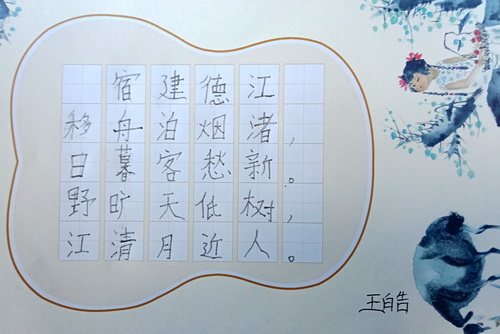 宿建德江
移舟泊烟渚，
日暮客愁新。
野旷天低树，
江清月近人。
王皓